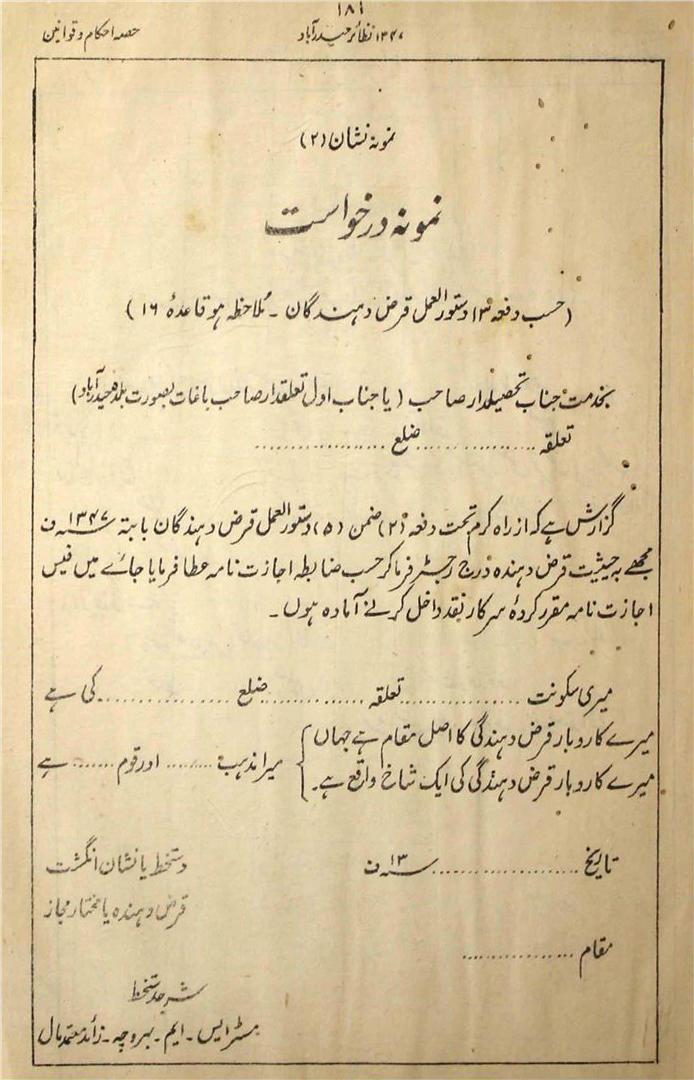 ۱۸۱
۱۳۴۷ نظائر حیدرآباد
حصہ احکام و قوانین
نمونہ نشان (۲)
نمونہ درخواست
(حسب دفعہ ۱۳ دستور العمل قرض دہندگان ۔ ملاحظہ ہو قاعدۂ ۱۶)
بخدمت جناب تحصیلدار صاحب (یا جناب اول تعلقدار صاحب باغات بصورت بلدہ حیدرآباد)
تعلقہ .................. ضلع ....................
گزارش ہے کہ از راہ کرم تحت دفعہ (۲) ضمن (۵) دستور العمل قرض دہندگان بابتہ ۱۳۴۷ سنہ ف
مجھے بہ حیثیت قرض دہندہ درج رجسٹر فرما کر حسب ضابطہ اجازت نامہ عطا فرمایا جائے میں فیس
اجازت نامہ مقرر کردۂ سرکار نقد داخل کرنے آمادہ ہوں۔
میری سکونت .................. تعلقہ ............... ضلع .................. کی ہے
میرے کاروبار قرض دہندگی کا اصل مقام ہے جہاں
میرے کاروبار قرض دہندگی کی ایک شاخ واقع ہے۔
میرا مذہب ........ اور قوم ....... ہے
تاریخ ..................... ۱۳ سنہ ف
دستخط یا نشان انگشت
قرض دہندہ یا مختار مجاز
مقام ................
شرحد ستخط
مسٹر ایس ۔ ایم ۔ بہروچہ ۔ زائد معتمد مال